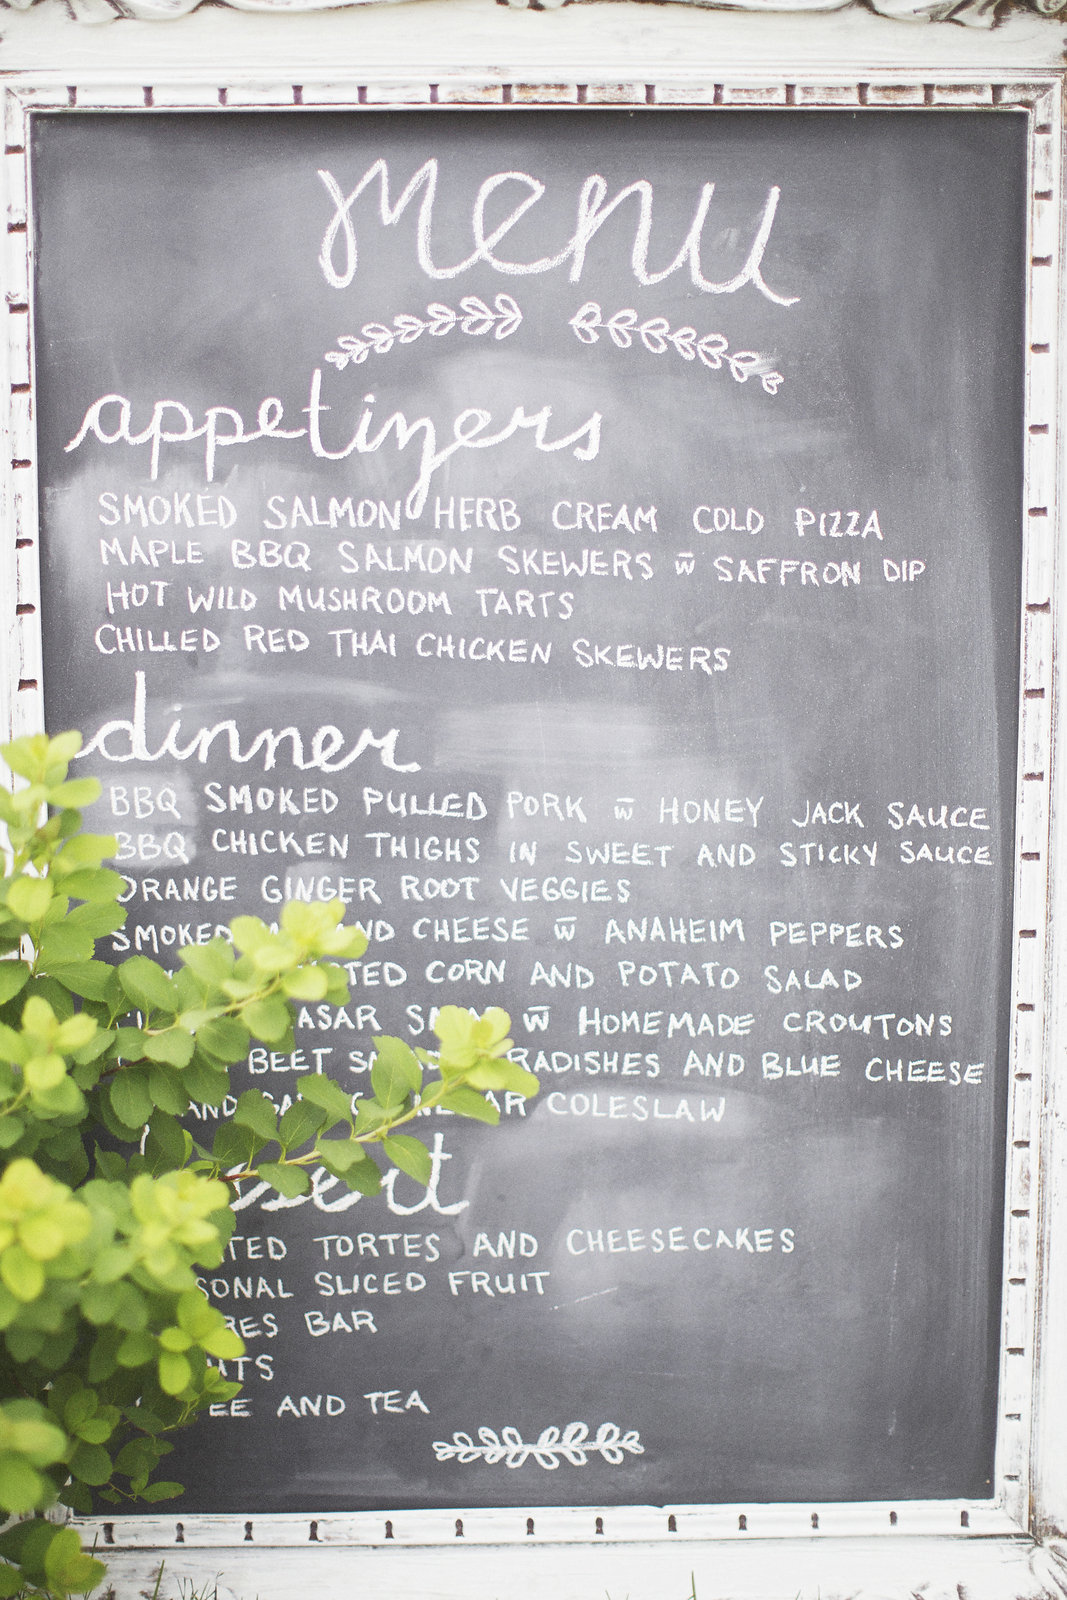 menu
appetizers
SMOKED SALMON HERB CREAM COLD PIZZA
MAPLE BBQ SALMON SKEWERS w̅ SAFFRON DIP
HOT WILD MUSHROOM TARTS
CHILLED RED THAI CHICKEN SKEWERS
dinner
BBQ SMOKED PULLED PORK w̅ HONEY JACK SAUCE
BBQ CHICKEN THIGHS IN SWEET AND STICKY SAUCE
ORANGE GINGER ROOT VEGGIES
SMOKED AND CHEESE w̅ ANAHEIM PEPPERS
CORN AND POTATO SALAD
w̅ HOMEMADE CROUTONS
BEET RADISHES AND BLUE CHEESE
COLESLAW
TORTES AND CHEESECAKES
SLICED FRUIT
BAR
AND TEA